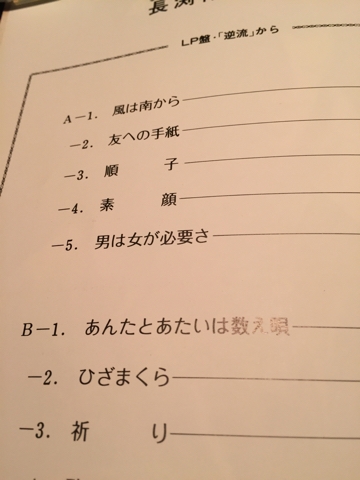 長渕
LP盤・「逆流」から
A－1. 風は南から
－2. 友への手紙
－3. 順 子
－4. 素 顔
－5. 男は女が必要さ
B－1. あんたとあたいは数え唄
－2. ひざまくら
－3. 祈 り